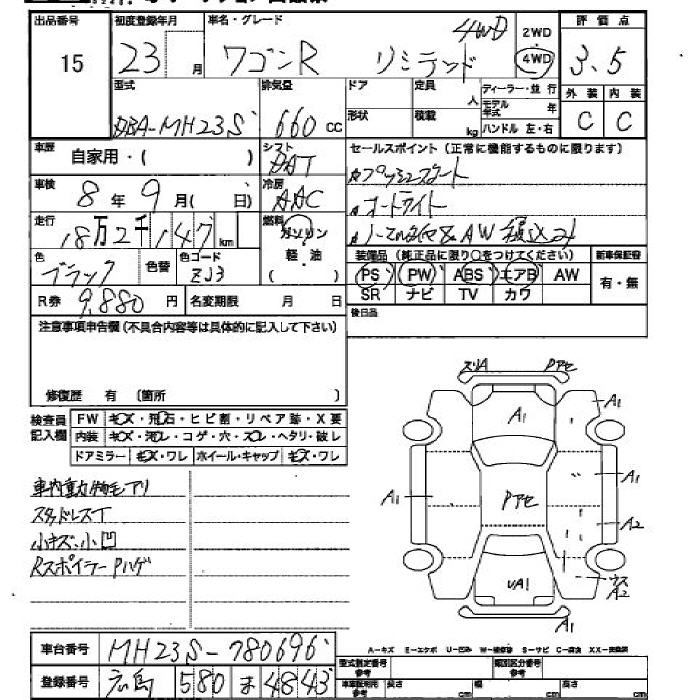 出品番号
15
初度登録年月
23 月
車名・グレード
ワゴンR リミテッド 4WD
2WD
4WD
評価点
3.5
外装 内装
C C
型式
DBA-MH23S
排気量
660 cc
ドア
形状
定員
人
積載
kg
ディーラー・並行
モデル年式 年
ハンドル 左・右
車歴
自家用・( )
シフト
DAT
セールスポイント(正常に機能するものに限ります)
プッシュスタート
オートライト
車検
8年9月( 日)
冷房
AAC
走行
18万2千147km
燃料
ガソリン
軽・油
( )
色
ブラック
色替
色コード
ZJ3
装備品(純正品に限り○をつけてください)
PS PW ABS エアB AW
SR ナビ TV カワ
新車保証書
有・無
R券 9,880円
名変期限 月 日
後日品
注意事項申告欄(不具合内容等は具体的に記入して下さい)
修復歴 有 〔箇所 〕
検査員記入欄
FW キズ・飛石・ヒビ割・リペア跡・X要
内装 キズ・汚レ・コゲ・穴・スレ・ヘタリ・破レ
ドアミラー キズ・ワレ ホイール・キャップ キズ・ワレ
車内動物毛アリ
スタッドレスT
小キズ、小凹
RスポイラーPハゲ
スリA Pアセ
A1
A1
A1
A1
Pアセ
A2
UA1
ウス
A2
A1
A-キズ E-エクボ U-凹み W-補修跡 S-サビ C-腐食 XX-交換済
車台番号 MH23S-780696
登録番号 広島 580 ま 4843
型式指定番号 参考
類別区分番号 参考
車庫証明用 参考
長さ cm 幅 cm 高さ cm